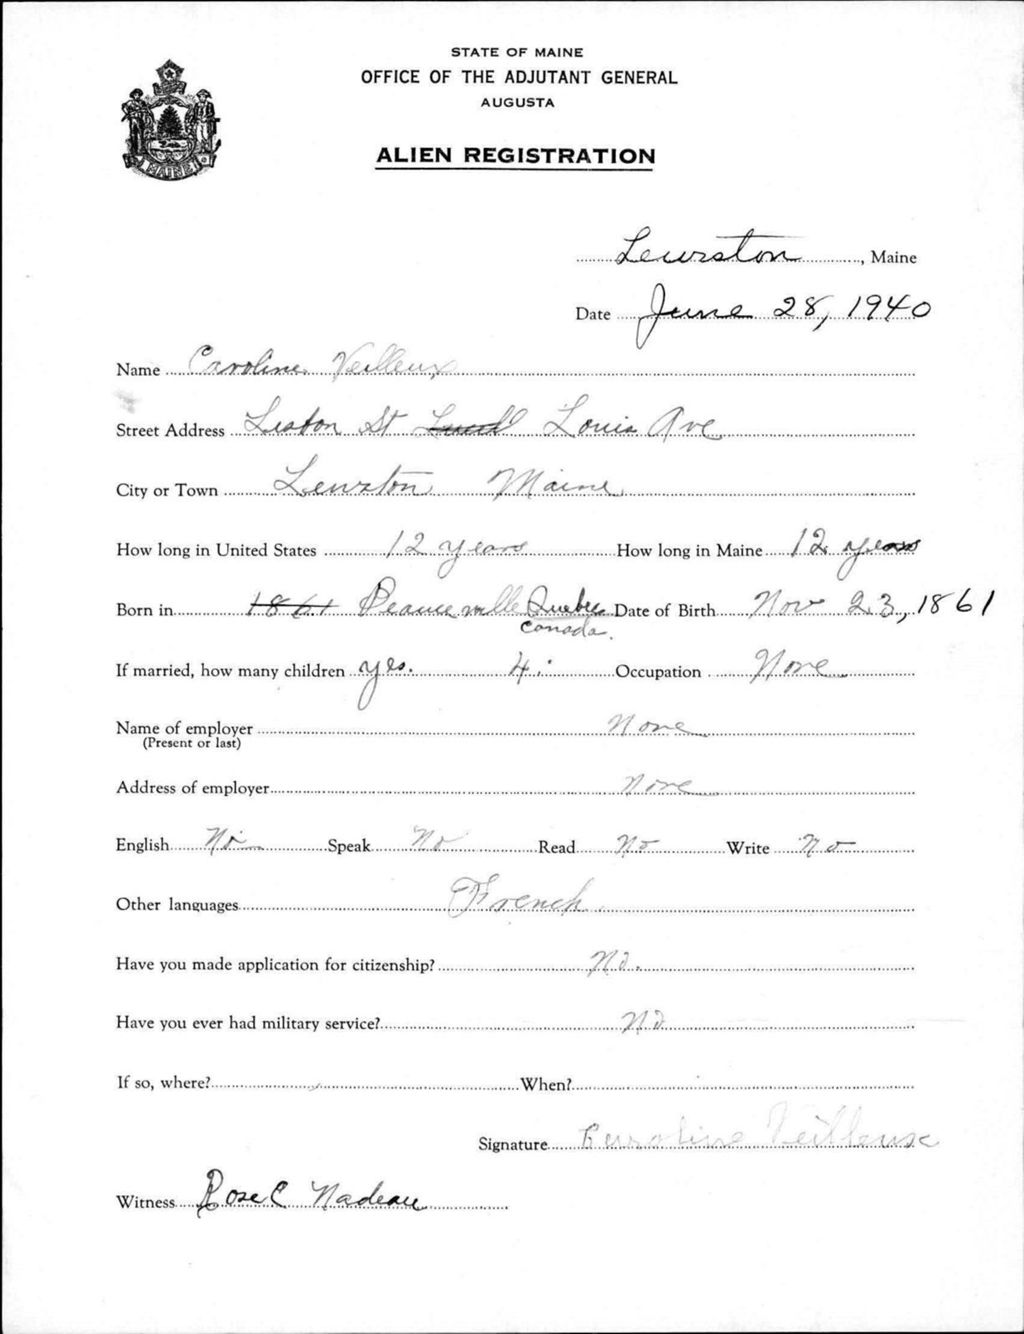 STATE OF MAINE
OFFICE OF THE ADJUTANT GENERAL
AUGUSTA
ALIEN REGISTRATION
MAINE
Lewiston, Maine
Date June 28, 1940
Name Caroline Veilleux
Street Address Lisbon St Louis Ave
City or Town Lewston Maine
How long in United States 12 years How long in Maine 12 years
Born in 1861 Beauceville Quebec Date of Birth Nov 23, 1861
Canada.
If married, how many children yes. 4. Occupation None
Name of employer None
(Present or last)
Address of employer None
English No Speak No Read No Write No
Other languages French.
Have you made application for citizenship? No.
Have you ever had military service? No
If so, where? When?
Signature Caroline Veilleux
Witness Rose C Nadeau